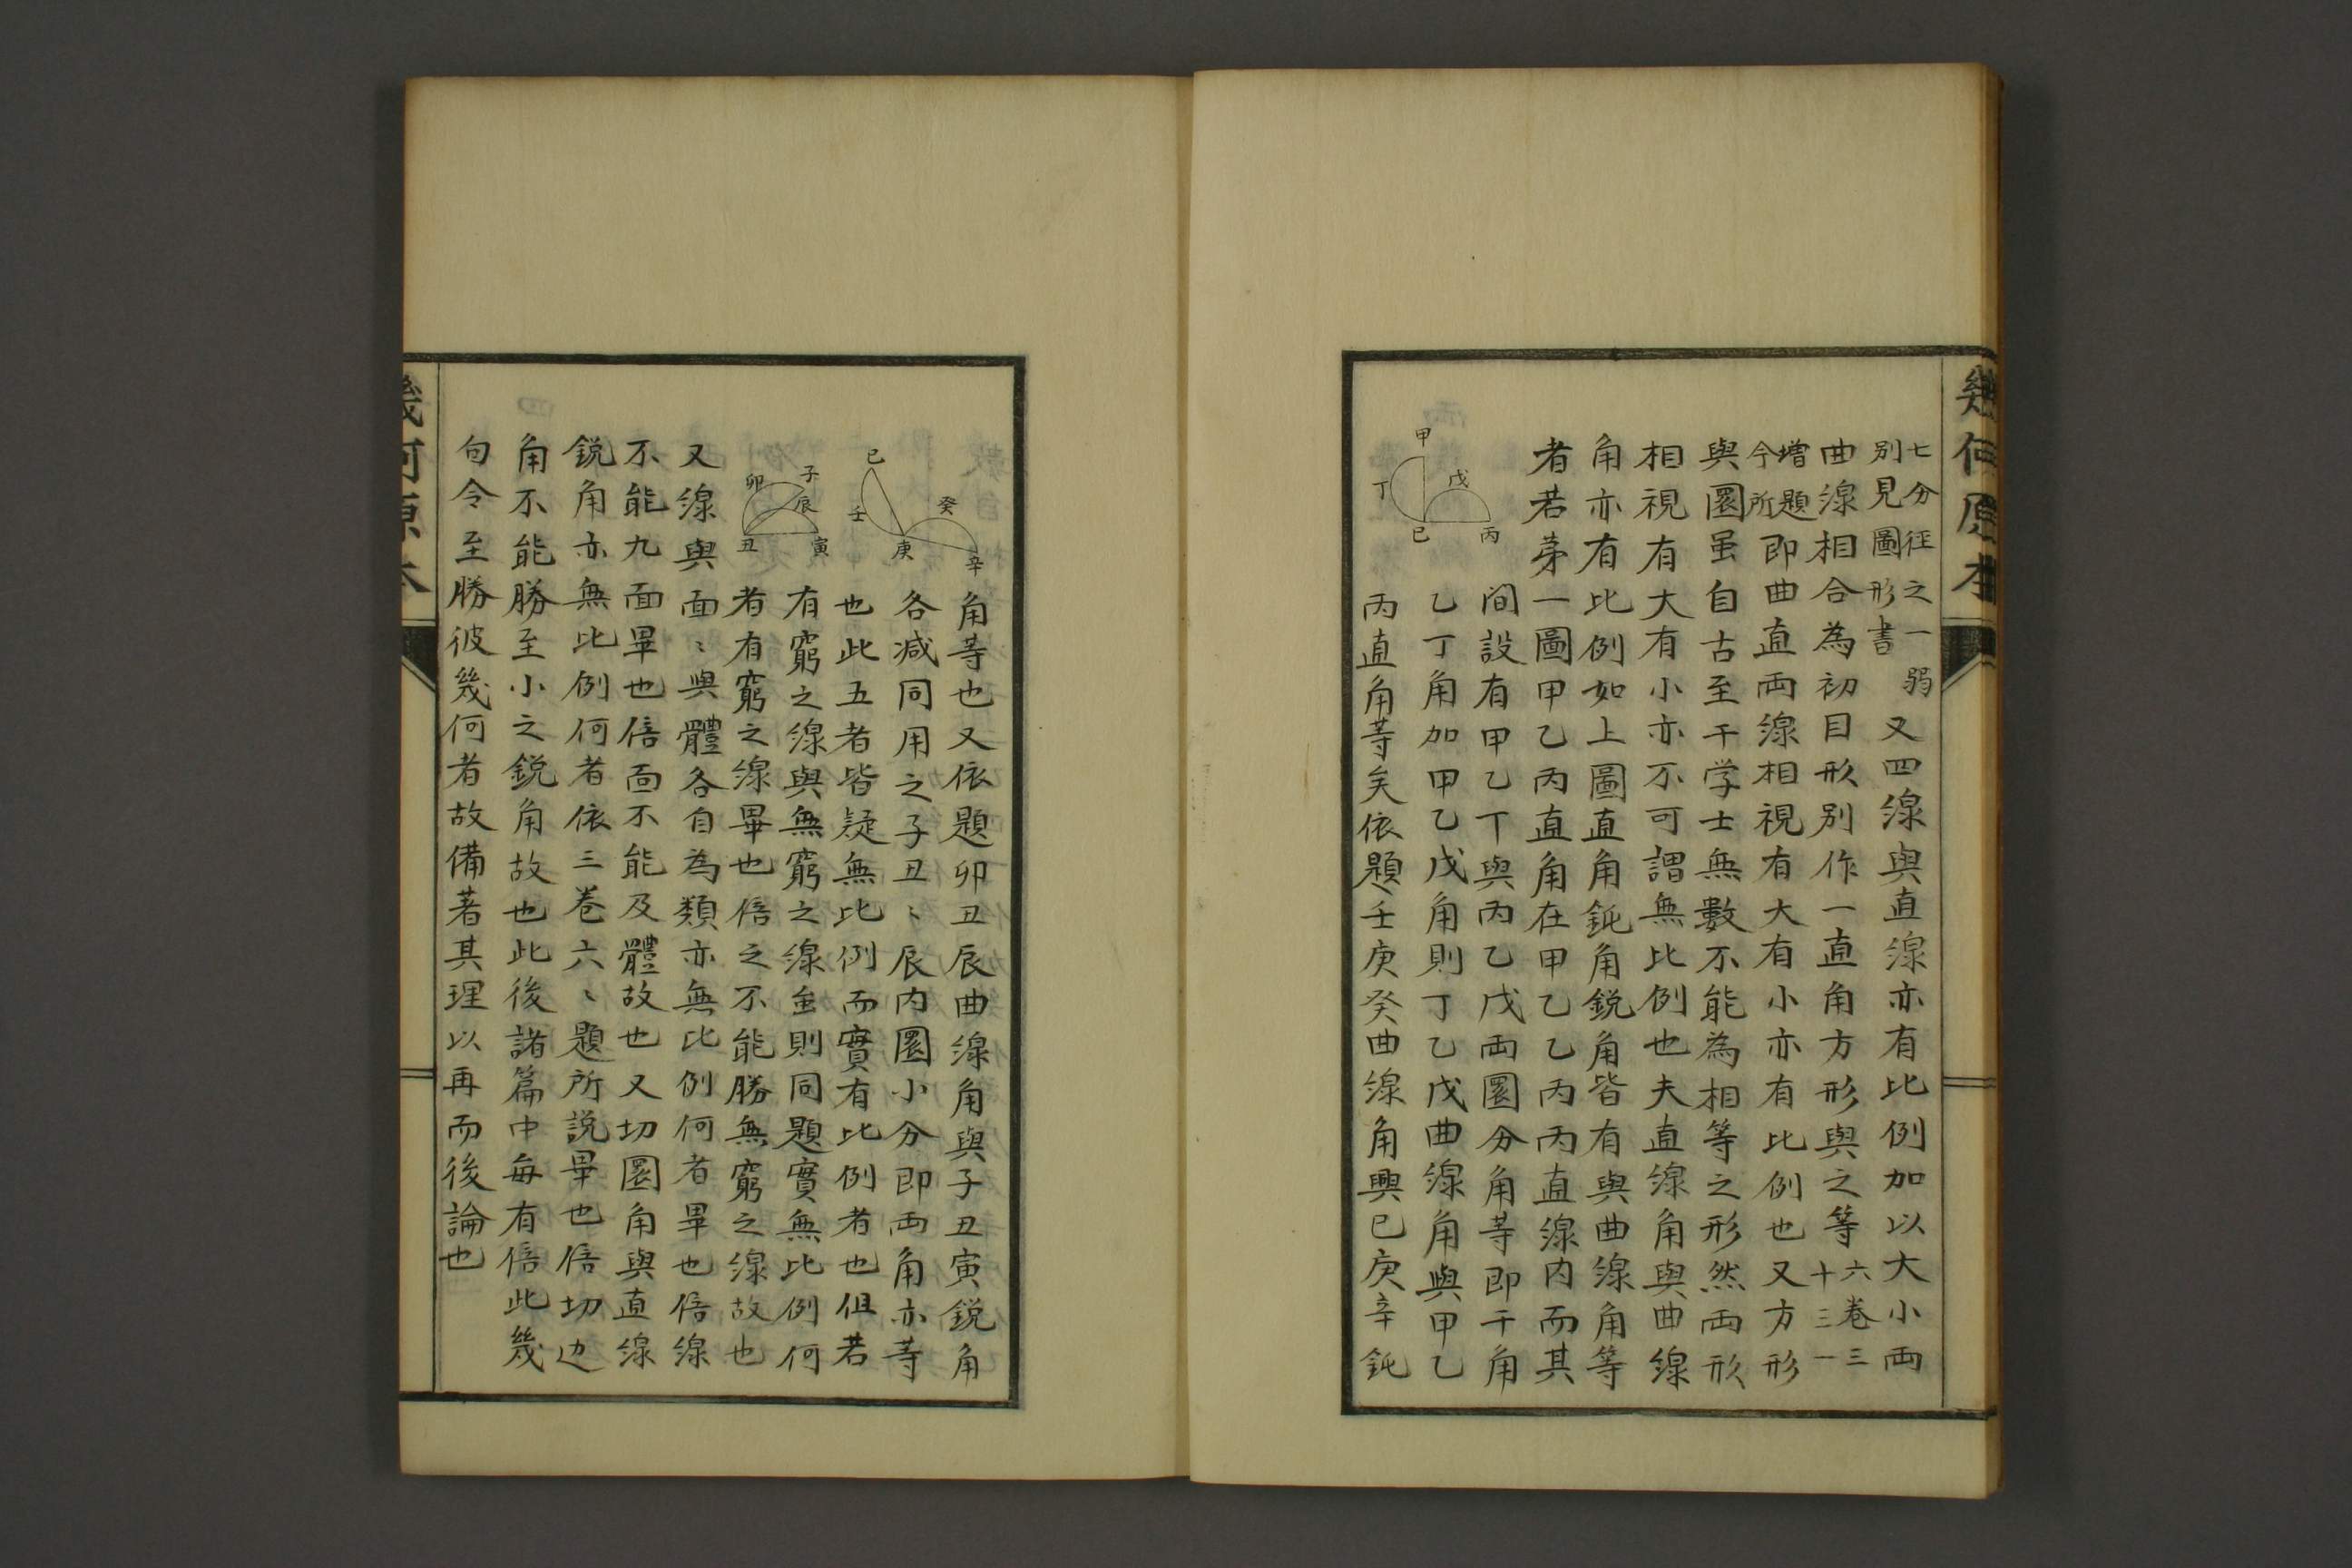 幾何原本
七分徑之一弱
別見圖形書
又四線與直線亦有比例加以大小両
曲線相合為初目形別作一直角方形與之等
六卷三
十三一
增題
今所
即曲直両線相視有大有小亦有比例也又方形
與圜虽自古至于学士無數不能為相等之形然両形
相視有大有小亦不可謂無比例也夫直線角與曲線
角亦有比例如上圖直角鈍角銳角皆有與曲線角等
者若苐一圖甲乙丙直角在甲乙乙丙丙直線内而其
甲
丁
戊
己
丙
间設有甲乙丁與丙乙戊両圜分角等即于角
乙丁角加甲乙戊角則丁乙戊曲線角與甲乙
丙直角等矣依題丶壬庚癸曲線角興己庚辛鈍
角等也又依題卯丑辰曲線角與子丑寅銳角
己
壬
癸
庚
辛
各减同用之子丑丶辰内圜小分即両角亦等
也此五者皆疑無比例而實有比例者也但若
子
卯
辰
丑
寅
有窮之線與無窮之線虽則同題實無比例何
者有窮之線畢也倍之不能勝無窮之線故也
又線與面丶與體各自為類亦無比例何者畢也倍線
不能九面畢也倍面不能及體故也又切圜角與直線
銳角亦無比例何者依三卷六丶題所説畢也倍切边
角不能勝至小之銳角故也此後諸篇中每有倍此幾
句令至勝彼幾何者故備著其理以再而後論也
幾何原本